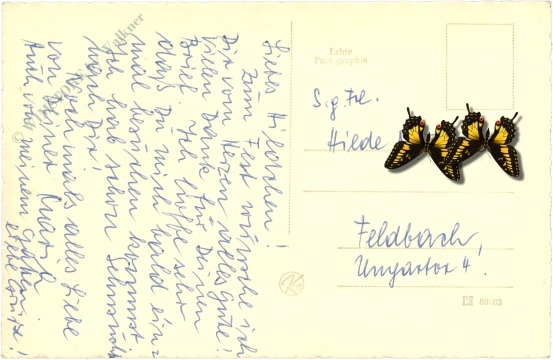 Liebes Hildchen!
Zum Fest wünsche ich
Dir vom Herzen alles Gute!
Vielen Dank für Deinen
Brief. Ich hoffe sehr
dass Du mich bald ein=
mal besuchen kommst
Ich hab schon Sehnsucht
nach Dir!
Nochmals alles Liebe
von Deiner
Auch von meinem
liebe Grüße!
Echte
Photographie
S.g. Frl.
Hilde
Feldbach,
Ungarstr 4.
60063